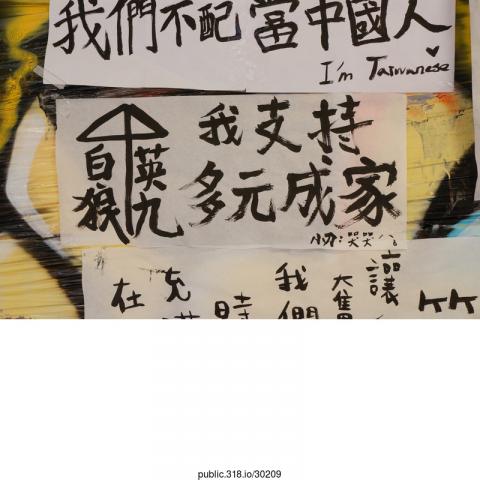 我們不配當中國人
I'm Taiwanese
我支持
多元成家
白狼
英九
我們
在
時
大舊
讓
public.318.io/30209